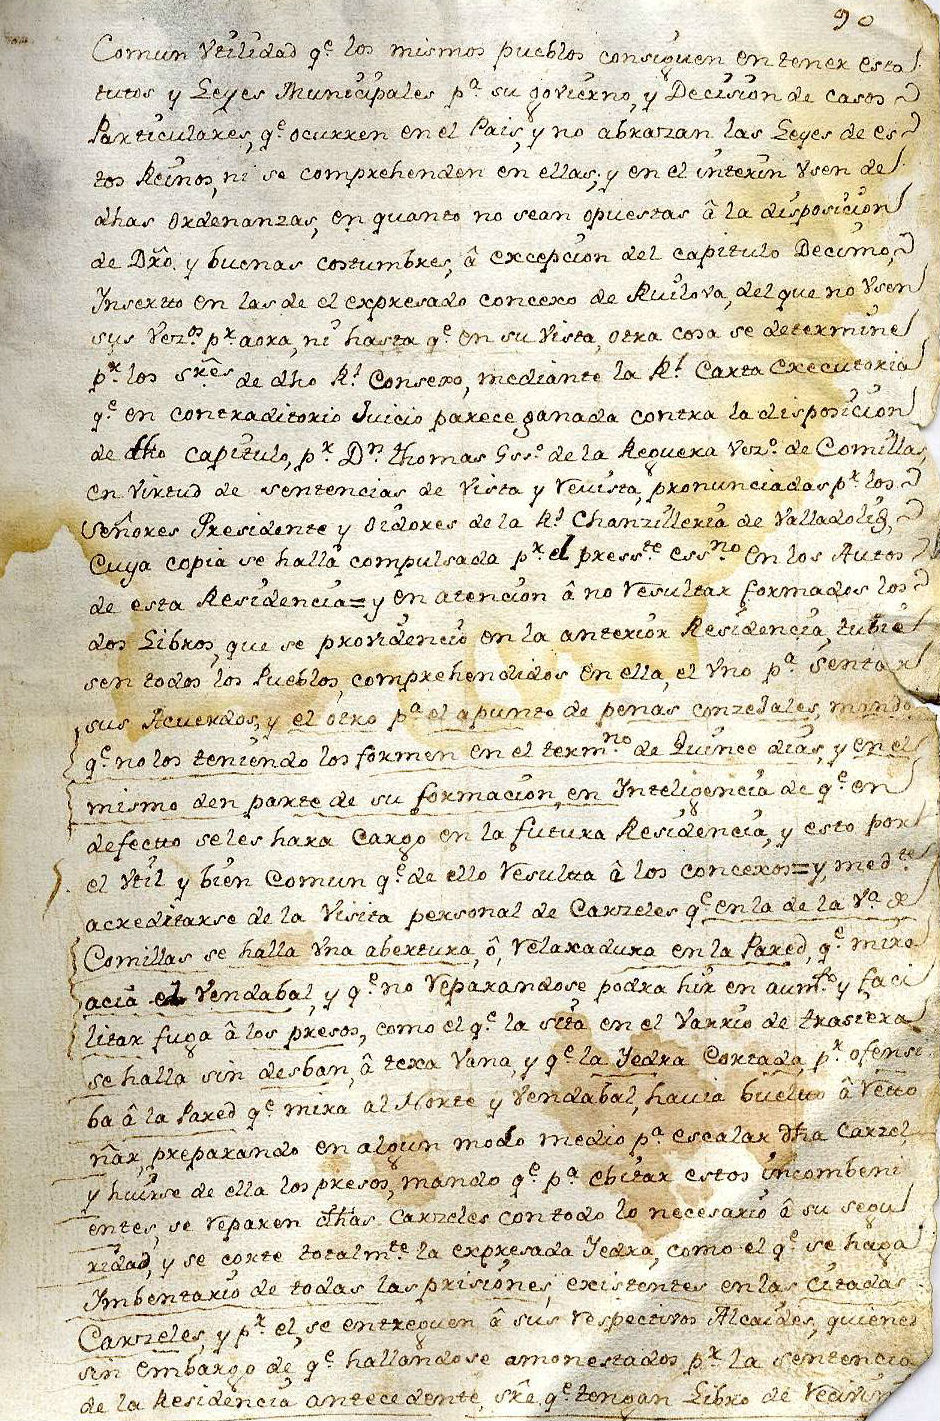 90
Comun Vtilidad q.e los mismos pueblos consiguen en tener esta
tutos y Leyes Municipales p.a su govierno, y Decision de casos
Particulares, q.e ocurren en el Pais, y no abrazan las Leyes de es
tos Reinos, ni se comprehenden en ellas; y en el interin Vsen de
dhas Ordenanzas, en quanto no sean opuestas â la disposicion
de Dro. y buenas costumbres, â excepcion del capitulo Decimo,
Inserto en las de el expresado concexo de Ruilova, del que no Vsen
sus Vez.os p.r aora, ni hasta q.e en su Vista, otra cosa se determine
p.r los Sres de dho R.l Consexo, mediante la R.l Carta Executoria
q.e en contraditorio Juicio parece ganada contra la disposicion
de dho capitulo, p.r D.n Thomas Gss.o de la Reguera Vez.o de Comillas,
en virtud de sentencias de Vista y Revista, pronunciadas p.r los
Señores Presidente y Oidores de la R.l Chanzilleria de Valladolid,
Cuya copia se halla compulsada p.r el press.te ess.no en los Autos
de esta Residencia = y en atencion â no resultar formados los
dos Libros, que se providenció en la anterior Residencia, tubie
sen todos los Pueblos, comprehendidos en ella, el Vno p.a sentar
sus Acuerdos, y el otro p.a el apunto de penas conzejales, mando
q.e no los teniendo los formen en el term.no de Quince dias, y en el
mismo den parte de su formacion, en Inteligencia de q.e en
defectto seles hara Cargo en la futura Residencia, y esto por
el Vtil y bien Comun q.e de ello resulta â los concexos = y, med.te
acreditarse de la Visita personal de Carzeles q.e en la de la V.a de
Comillas se halla Vna abertura, ô, relaxadura en la Pared, q.e mira
acia el Vendabal, y q.e no reparandose podra hir en aum.to y faci
litar fuga â los presos, como el q.e la sita en el Varrio de trasiera
se halla sin desban, â texa Vana, y q.e la Yedra Cortada, p.r ofensi
ba â la Pared q.e mira al Norte y Vendabal, havia buelto â Retto
ñar, preparando en algun modo medio p.a escalar dha Carzel
y huirse de ella los presos, mando q.e p.a ebitar estos incombeni
entes, se reparen dhas Carzeles con todo lo necesario â su segu
ridad, y se corte totalm.te la expresada Yedra, como el q.e se haga
Imbentario de todas las prisiones, existentes en las citadas
Carzeles, y p.r el, se entreguen â sus respectivos Alcaides, quienes
sin embargo de q.e hallandose amonestados p.r la sentencia
de la Residencia antecedente, sre q.e tengan Libro de